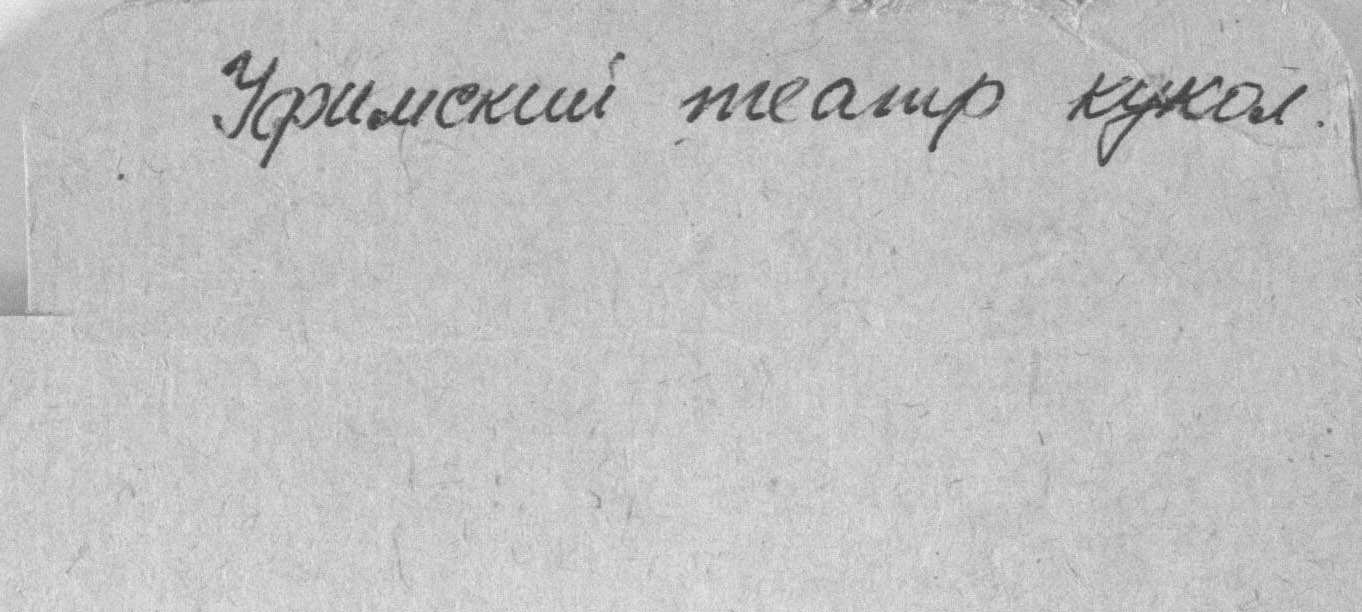 Уфимский театр кукол.